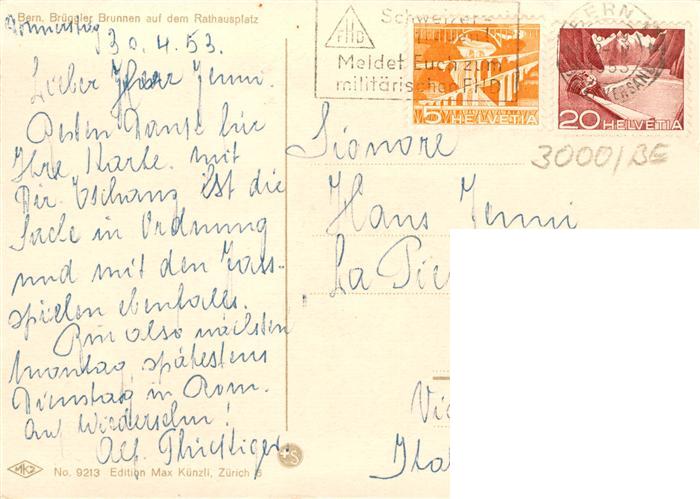 Bern. Brüggler Brunnen auf dem Rathausplatz
Donnerstag
30.4.53.
Lieber Herr Jenni.
Besten Dank für
Ihre Karte. mit
Dir. Tschanz ist die
Sache in Ordnung
und mit den Jass-
spielen ebenfalls.
Bin also nächsten
Montag, spätestens
Dienstag in Rom.
Auf Wiedersehn!
Alf.
MKZ
No. 9213 Edition Max Künzli, Zürich 6
Schweizer-
FHD
Meldet Euch zum
militärischen FHD
BERN
5 HELVETIA
20 HELVETIA
3000/BE
Signore
Hans Jenni
La